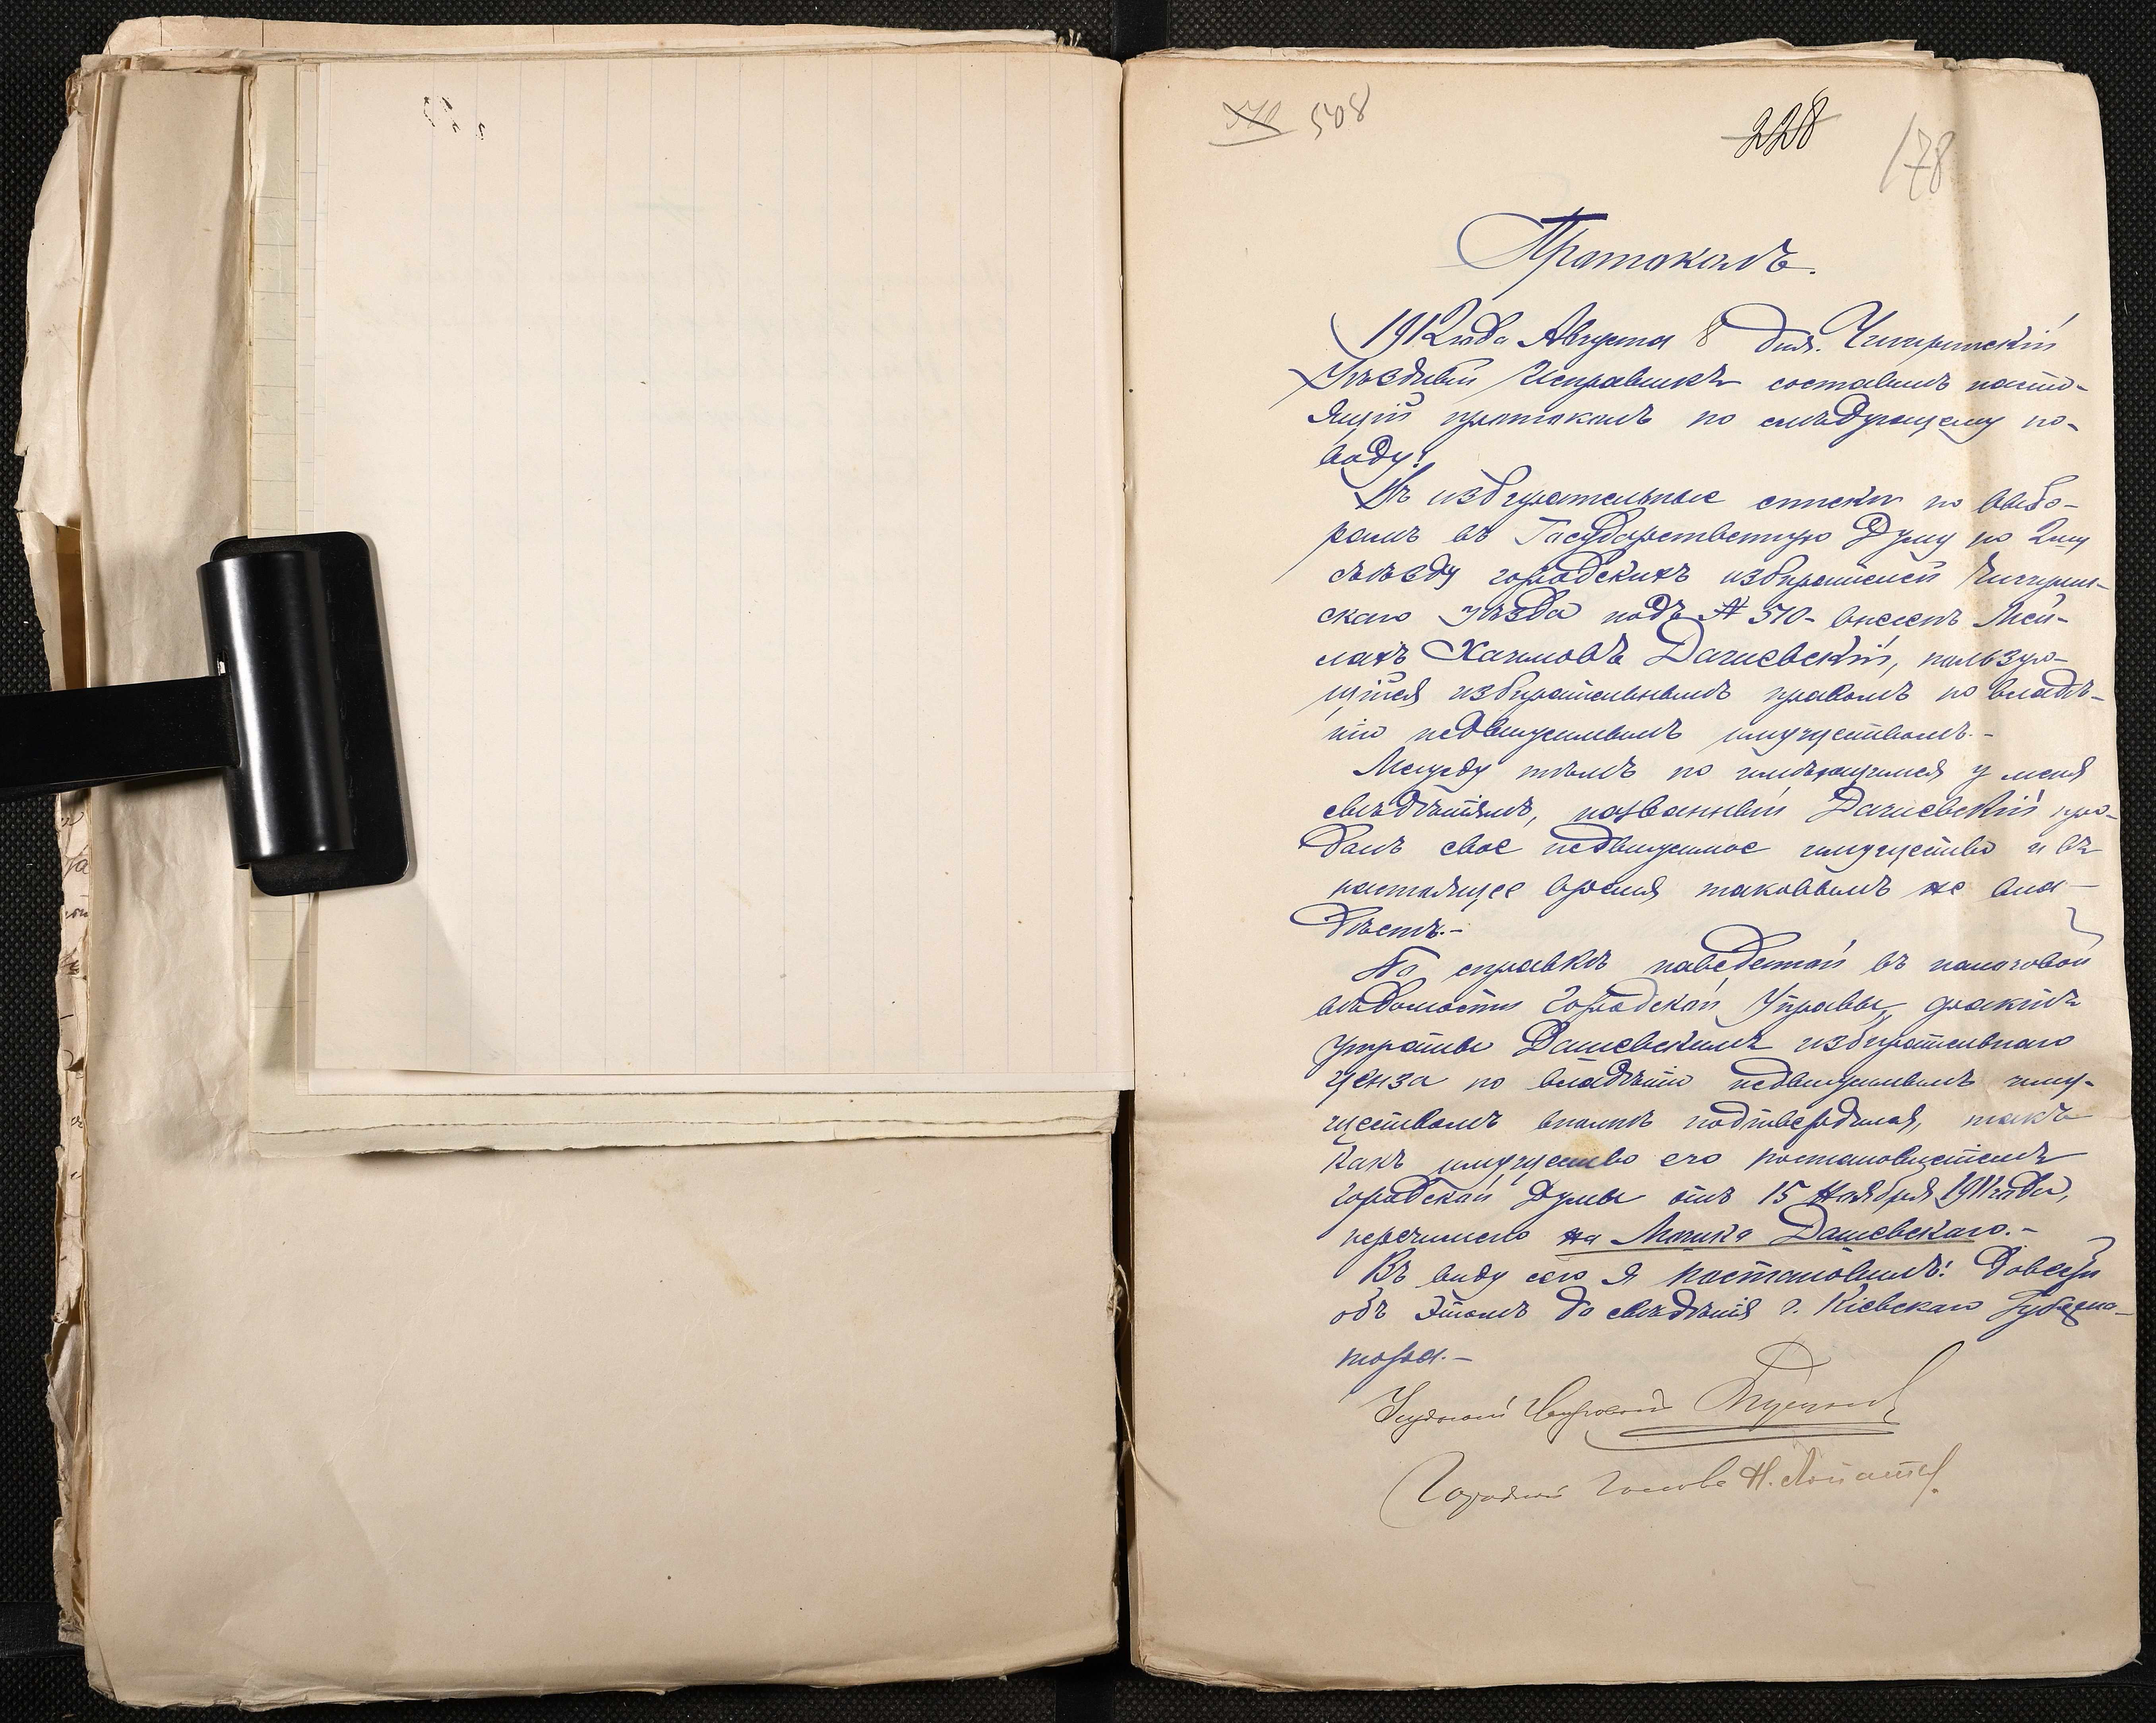 508
228
178
Протоколъ.
1912 года Августа 8 дня. Чигиринскій
Уѣздный Исправникъ составилъ насто-
ящій протоколъ по слѣдующему по-
воду:
Въ избирательные списки по выбо-
рамъ въ Государственную Думу по 2му
съѣзду городскихъ избирателей Чигирин-
скаго уѣзда подъ № 570- внесенъ Мей-
лахъ Хаимовъ Дашевскій, пользую-
щійся избирательнымъ правомъ по владѣ-
нію недвижимымъ имуществомъ.-
Между тѣмъ по имѣющимся у меня
свѣдѣніямъ, названный Дашевскій про-
далъ свое недвижимое имущество и въ
настоящее время таковымъ не вла-
дѣетъ.-
По справкѣ наведенной въ налоговой
вѣдомости Городской Управы, фактъ
утраты Дашевскимъ избирательнаго
ценза по владѣнію недвижимымъ иму-
ществомъ вполнѣ подтвердился, такъ
какъ имущество его постановленіемъ
городской Думы отъ 15 Ноября 1911 года,
перечислено на Мошка Дашевскаго.-
Въ виду сего я постановилъ: довести
объ этомъ до свѣдѣнія г. Кіевскаго Губерна-
тора.-
Уѣздный Исправникъ
Городской Голова Н.